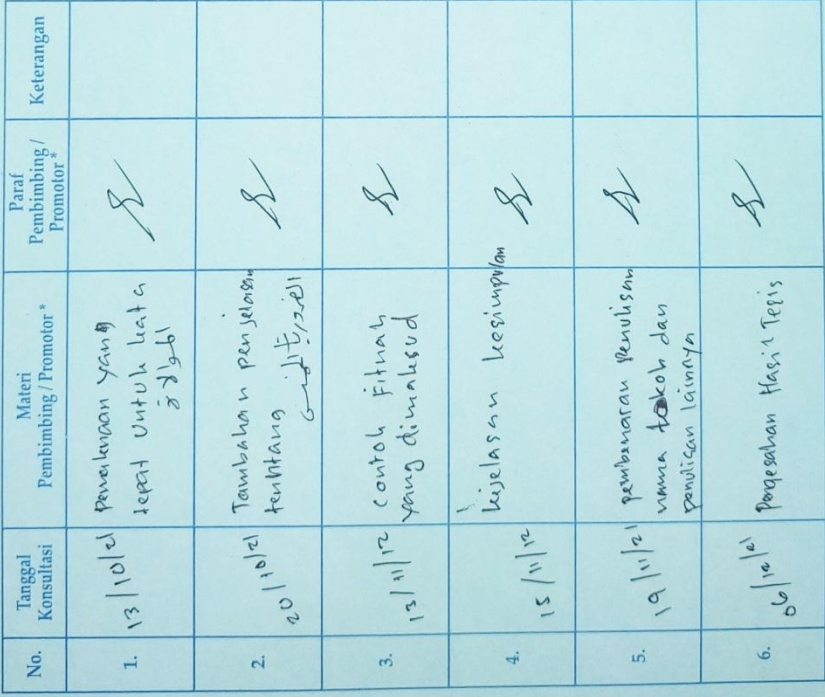 No.
Tanggal
Konsultasi
Materi
Pembimbing / Promotor *
Paraf
Pembimbing /
Promotor *
Keterangan
1.
13/10/21
Pemaknaan yang
tepat untuk kata
2.
20/10/21
Tambahan penjelasan
tentntang
3.
13/11/12
Contoh Fitnah
yang dimaksud
4.
15/11/12
kejelasan kesimpulan
5.
19/11/21
pembenaran penulisan
nama tokoh dan
penulisan lainnya
6.
06/12/21
Pengesahan Hasil Tesis